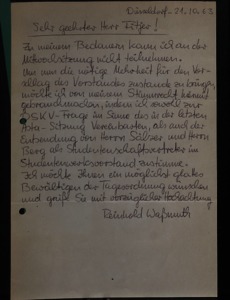 Düsseldorf - 21.10.62
Sehr geehrter Herr
Zu meinem Bedauern kann ich an der
nicht teilnehmen.
Um nun die nötige Mehrheit für den Vor-
schlag des Vorstandes zustande zu bringen,
möchte ich von meinem Stimmrecht
Gebrauch machen, indem ich sowohl zur
-Frage im Sinne des in der letzten
-Sitzung Vereinbarten, als auch der
Entsendung von Herrn und Herrn
Berg als Studentenschaftsvertreter im
zustimme.
Ich möchte Ihnen ein möglichst glattes
Bewältigen der Tagesordnung wünschen
und grüße Sie mit vorzüglicher Hochachtung
Reinhold